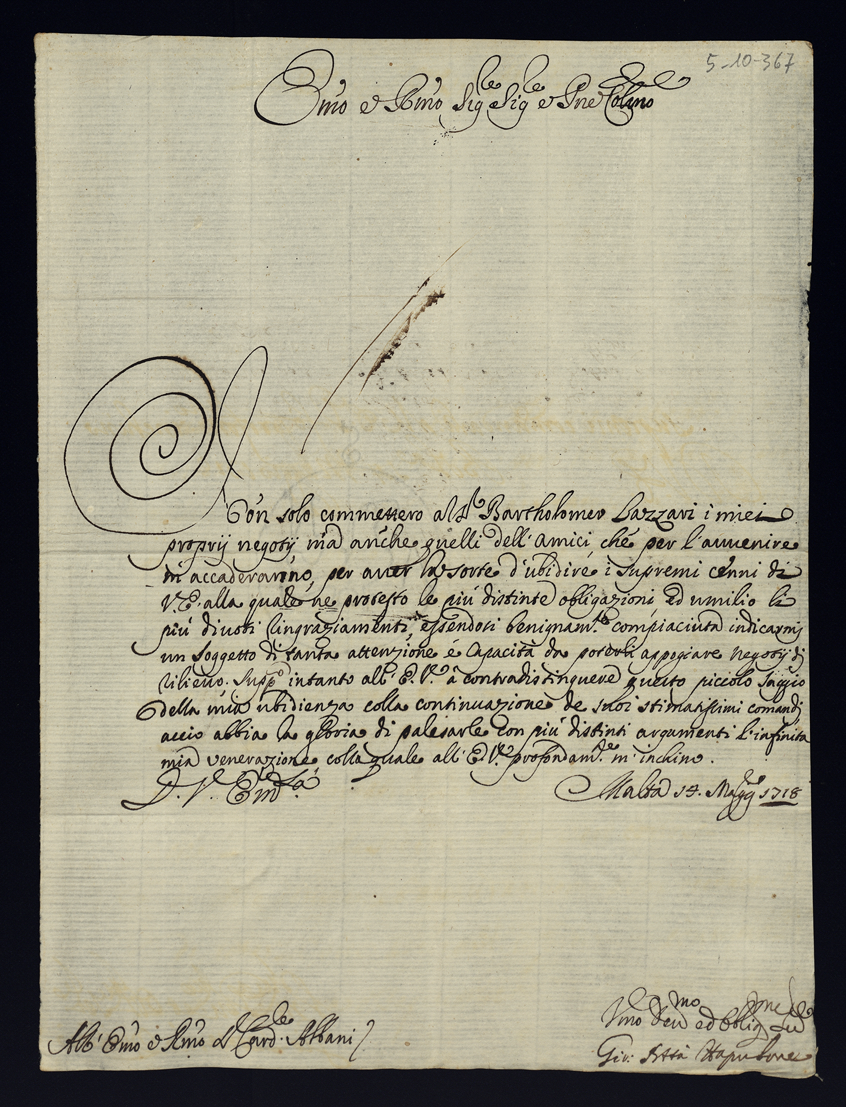 5-10-367
Emo e Rmo Sig.re Sig.re e Prne Colmo
Non solo commettero al Sr Bartholomeo Lazzari i miei
proprij negotij mà anche quelli dell'Amici, che per l'avvenire
m'accaderanno, per aver la sorte d'ubidire i supremi cenni di
V.E. alla quale ne protesto le più distinte obligazioni ed umilio li
più divoti ringraziamenti, essendosi benignam.te compiaciuta indicarmi
un soggetto di tanta attenzione e capacità da poterli appogiare negotij di
rilievo. Supp.co intanto all'E.V. à contradistinguere questo piccolo saggio
della mia ubidienza colla continuazione de suoi stimatissimi comandi
acciò abbia la gloria di palesarle con più distinti argumenti l'infinita
mia venerazione colla quale all'E.V. profondam.te m'inchino.
D. V. Em.za
Malta 14. Magg.o 1718
All' Emo e Rmo Sr Card.le Albani
Vmo Dev.mo ed Obblig.mo
Gio: Btta